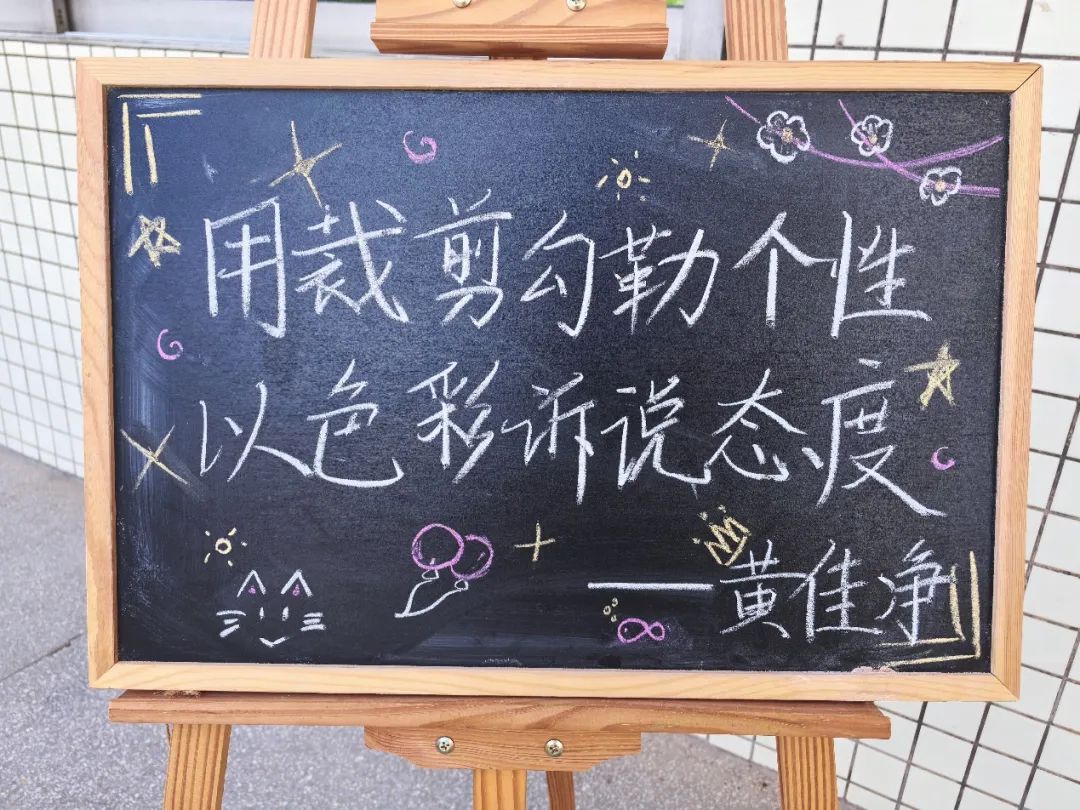 用裁剪勾勒个性
以色彩诉说态度
——黄佳净